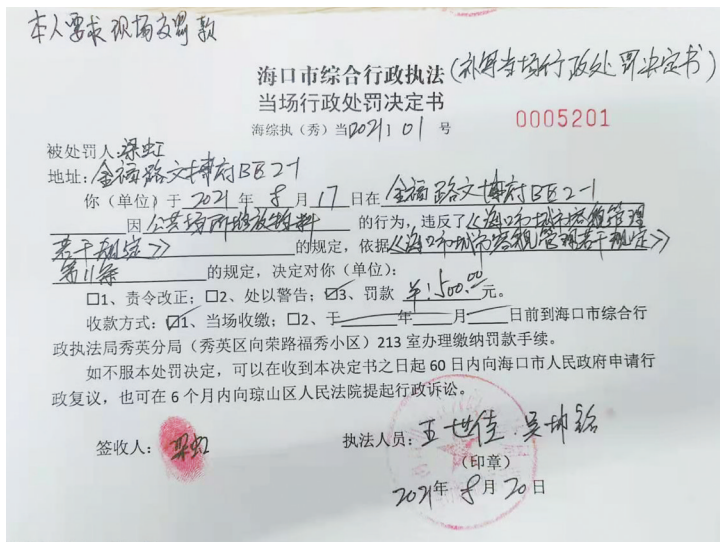 本人要求现场交罚款
海口市综合行政执法(补写当场行政处罚决定书)
当场行政处罚决定书
海综执(秀)当2021:01号
0005201
被处罚人:梁虹
地址:金福路文博府BE2-1
你(单位)于2021年8月17日在金福路文博府BE2-1
因公共场所堆放物料的行为,违反了《海口市城市容貌管理
若干规定》的规定,依据《海口市城市容貌管理若干规定》
第11条的规定,决定对你(单位):
□1、责令改正;□2、处以警告;☑3、罚款¥:500.00元。
收款方式:☑1、当场收缴;□2、于 年 月 日前到海口市综合行
政执法局秀英分局(秀英区向荣路福秀小区)213室办理缴纳罚款手续。
如不服本处罚决定,可以在收到本决定书之日起60日内向海口市人民政府申请行
政复议,也可在6个月内向琼山区人民法院提起行政诉讼。
签收人:梁虹
执法人员:王世佳 吴坤
(印章)
2021年8月20日